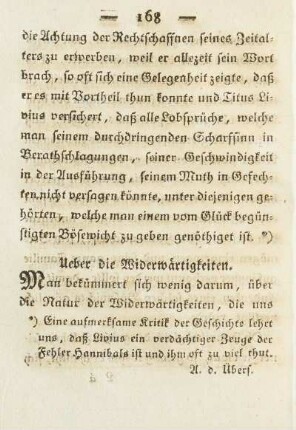 — 168 —
die Achtung der Rechtschaffnen seines Zeital-
ters zu erwerben, weil er allezeit sein Wort
brach, so oft sich eine Gelegenheit zeigte, daß
er es mit Vortheil thun konnte und Titus Li-
vius versichert, daß alle Lobsprüche, welche
man seinem durchdringenden Scharfsinn in
Berathschlagungen, seiner Geschwindigkeit
in der Ausführung, seinem Muth in Gefech-
ten, nicht versagen könnte, unter diejenigen ge-
hörten, welche man einem vom Glück begün-
stigten Bösewicht zu geben genöthiget ist. *)
Ueber die Widerwärtigkeiten.
Man bekümmert sich wenig darum, über
die Natur der Widerwärtigkeiten, die uns
*) Eine aufmerksame Kritik der Geschichte lehrt
uns, daß Livius ein verdächtiger Zeuge der
Fehler Hannibals ist und ihm oft zu viel thut.
A. d. Übers.